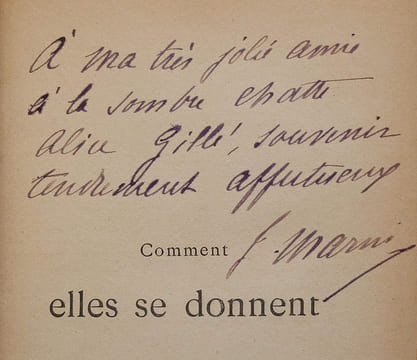 À ma très jolie amie
à la sombre chatte
Alice Gillé, souvenir
tendrement affectueux
J. Marni
Comment
elles se donnent